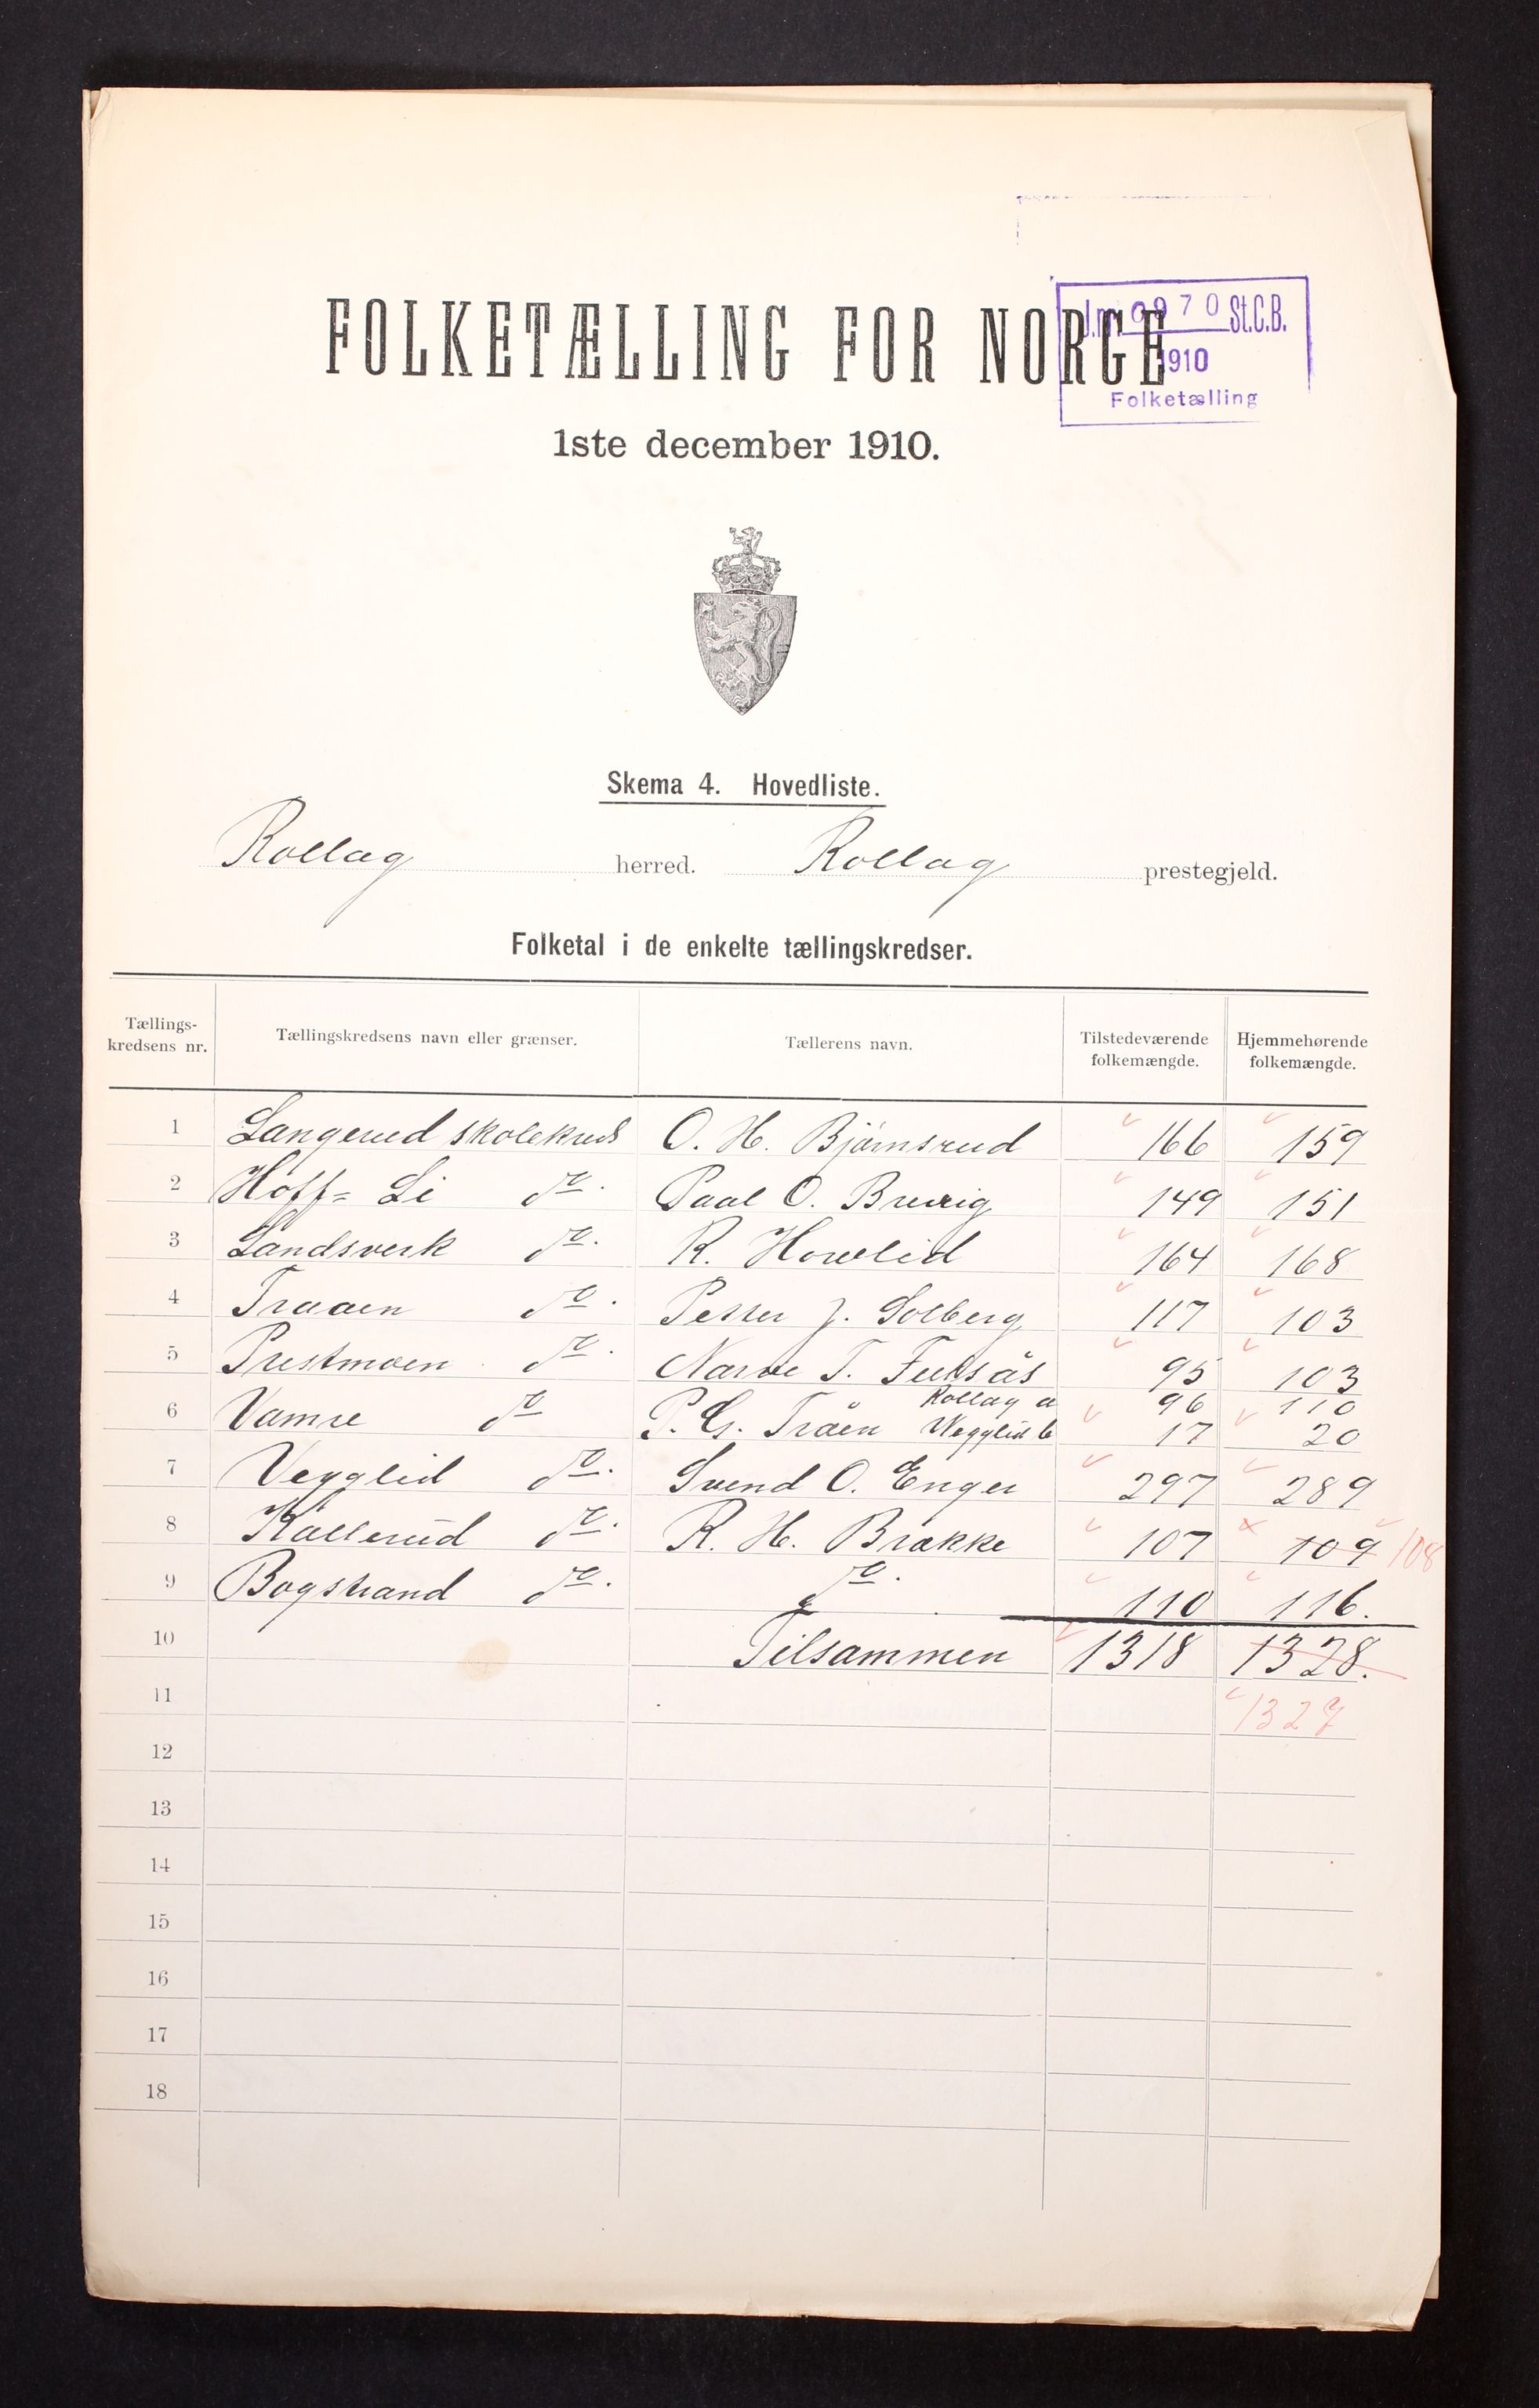 J.nr. 6970 St.C.B.
1910
Folketælling
FOLKETÆLLING FOR NORGE
1ste december 1910.
Skema 4. Hovedliste.
Rollag herred. Rollag prestegjeld.
Folketal i de enkelte tællingskredser.
Tællings-kredsens nr. Tællingskredsens navn eller grænser. Tællerens navn. Tilstedeværende folkemængde. Hjemmehørende folkemængde.
1 Langerud skolekreds O. H. Björnsrud 166 159
2 Hoff= Li do. Paal O. 149 151
3 Landsverk do. R. 164 168
4 Traaen do. Petter J. Solberg 117 103
5 Prestmoen do. Narve T. 95 103
Rollag a 96 110
6 Vamre do P. G. Tråen Wegglid b 17 20
7 Vegglid do. Svend O. Enger 297 289
8 Kallerud do. R. H. Brække 107 109 108
9 Bogstrand do. do. 110 116.
10 Tilsammen 1318 1328.
11 1327
12
13
14
15
16
17
18